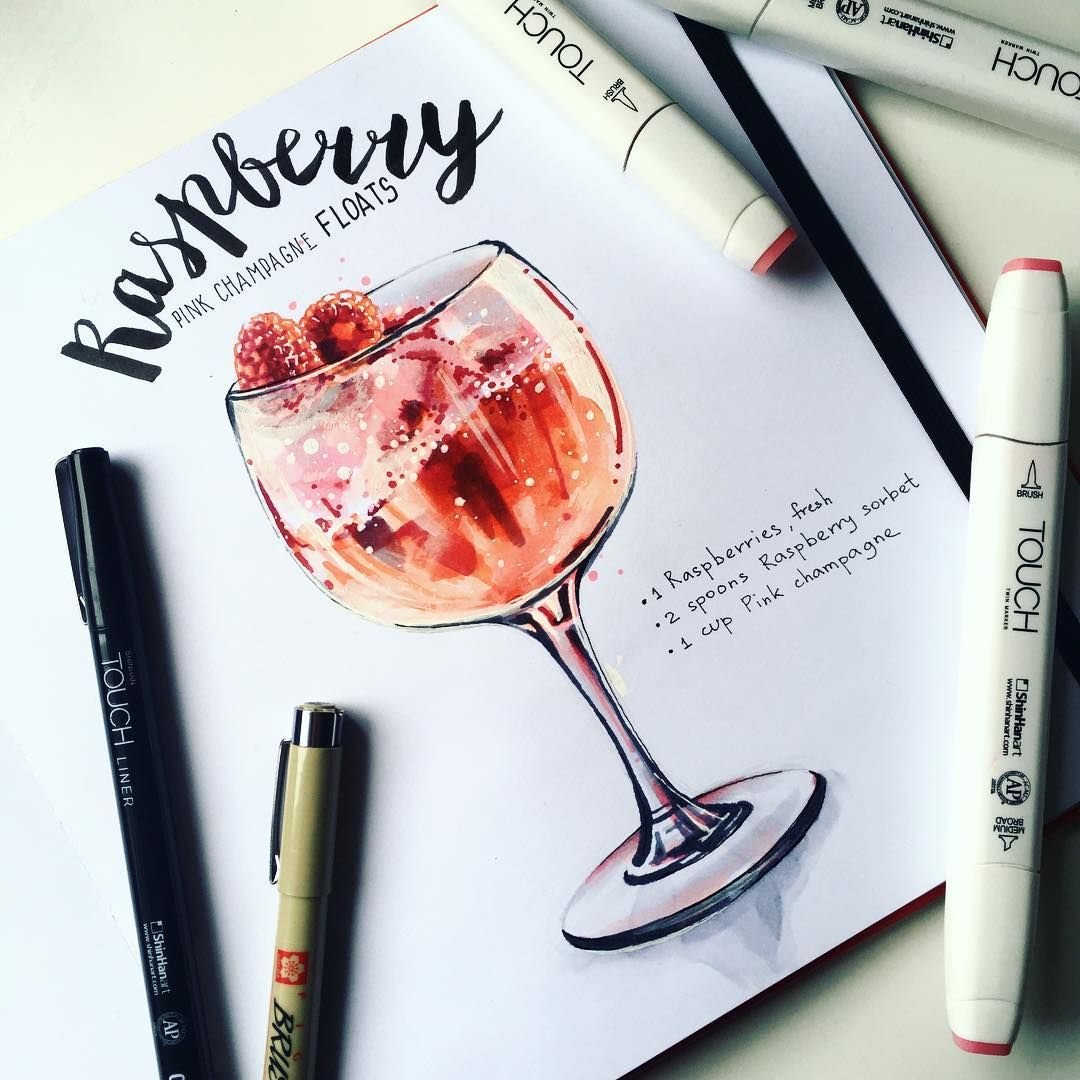 Raspberry
PINK CHAMPAGNE FLOATS
• 1 Raspberries, fresh
• 2 spoons Raspberry sorbet
• 1 cup Pink champagne
TOUCH
BRUSH
TOUCH
TWIN MARKER
ShinHanart
www.shinhanart.com
AP
BRUSH
TOUCH
TWIN MARKER
ShinHanart
www.shinhanart.com
AP
MEDIUM
BROAD
SHINHAN
TOUCH LINER
ShinHanart
www.shinhanart.com
AP